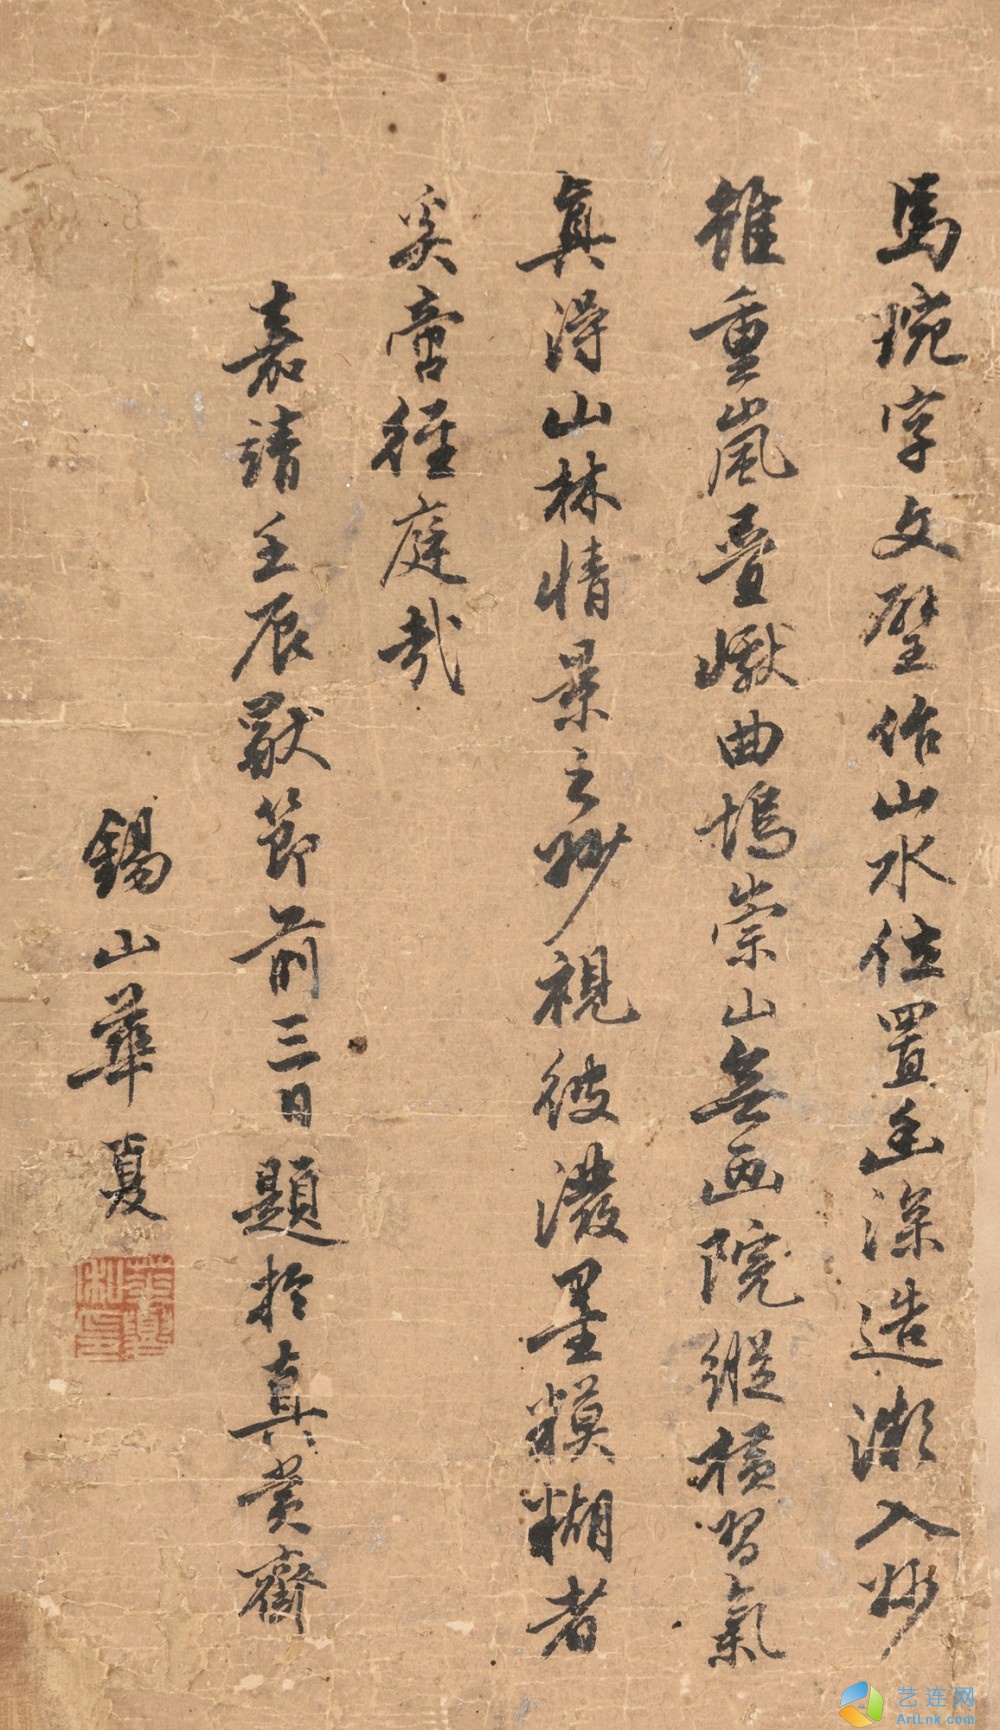 馬琬字文璧作山水位置幽深造漸入妙
雖重嵐疊巘曲塢崇山無画院縱橫習氣
真得山林情景之妙視彼濃墨糢糊者
奚啻徑庭哉
嘉靖壬辰獸節前三日題於真賞齋
錫山華夏
艺连网
ArtLnk.com